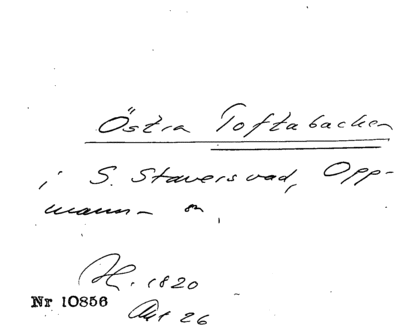 Östra Toftabacken
i S. Staversvad, Opp-
mann- sn.
H. 1820
Akt 26
Nr 10856